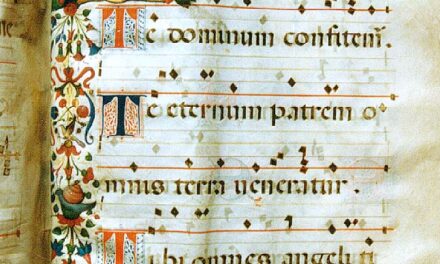 Te dominum confitem.
Te eternum patrem o
mnis terra ueneratur.
Tibi omnes angeli ti